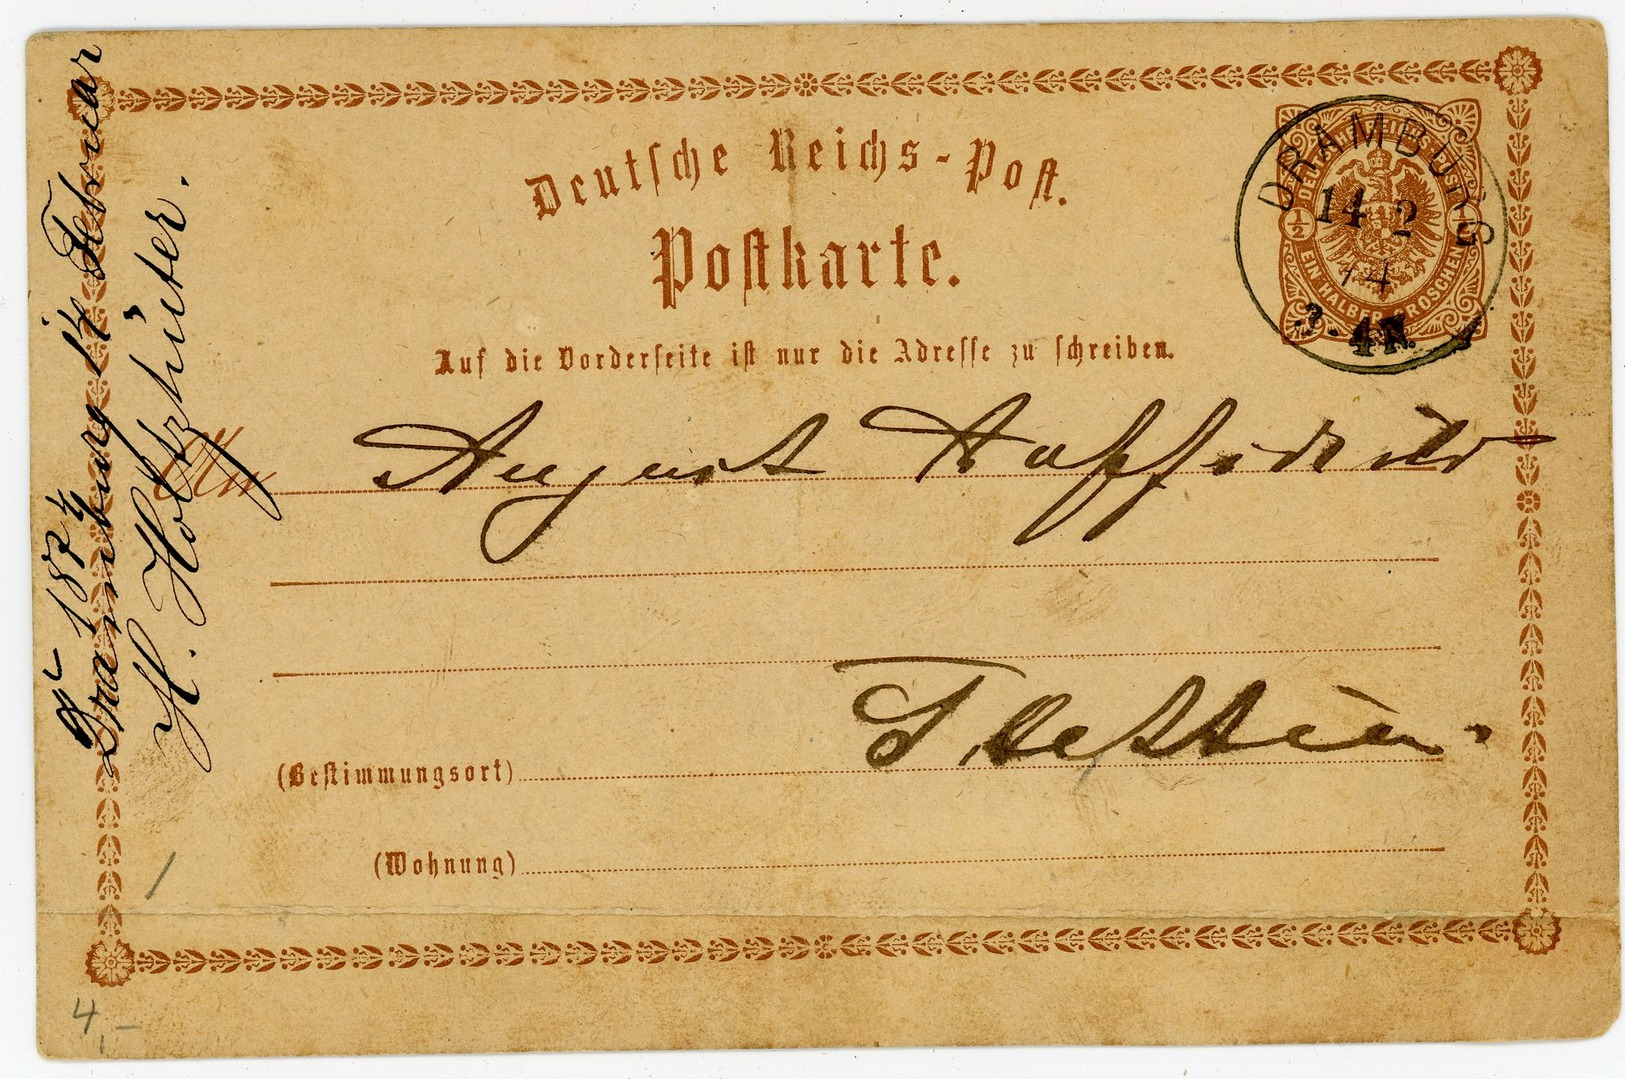 Deutsche Reichs-Post.
Postkarte.
Auf die Vorderseite ist nur die Adresse zu schreiben.
DEUTSCHE REICHS-POST
1/2
1/2
EIN HALBER GROSCHEN
DRAMBURG
14 2
74
3-4N.
An August
Stettin.
(Bestimmungsort)
(Wohnung)
1874
Dramburg 14 Februar
H. Holtzhüter.
4,-